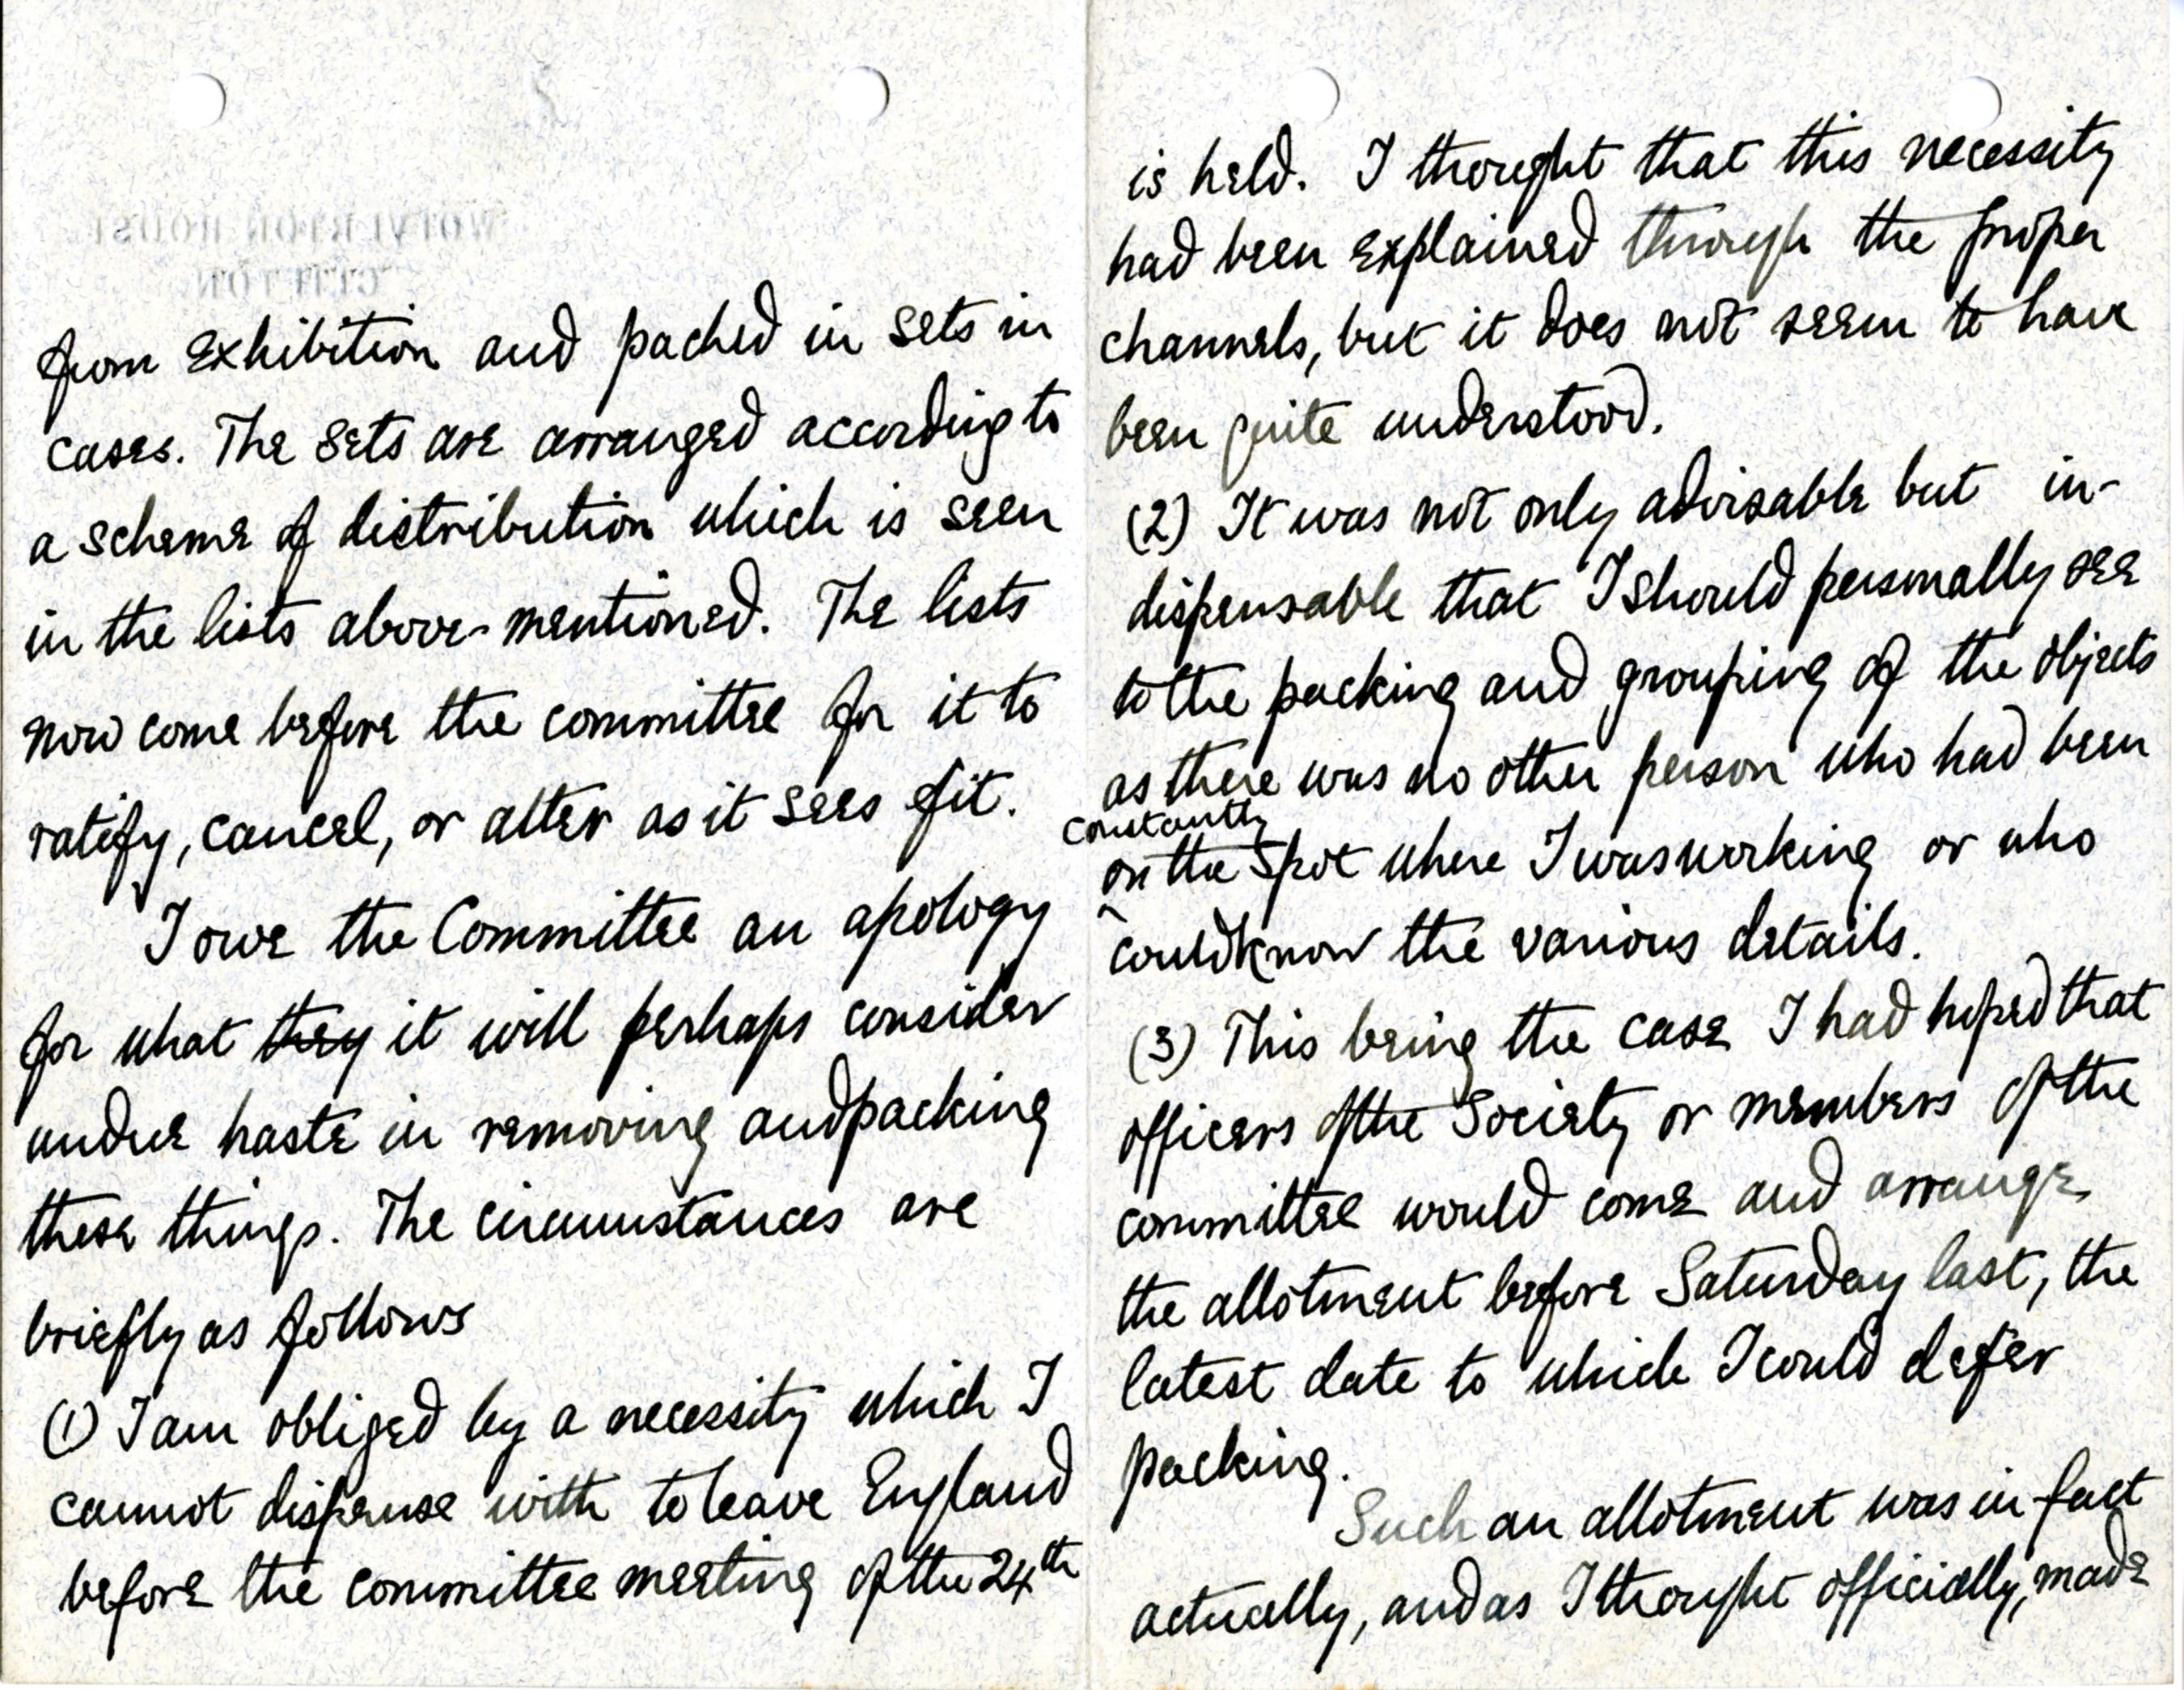 from exhibition and packed in sets in
cases. The sets are arranged according to
a scheme of distribution which is seen
in the lists above-mentioned. The lists
now come before the committee for it to
ratify, cancel, or alter as it sees fit.
I owe the Committee an apology
for what they it will perhaps consider
undue haste in removing and packing
these things. The circumstances are
briefly as follows
(1) I am obliged by a necessity which I
cannot dispense with to leave England
before the committee meeting of the 24th
is held. I thought that this necessity
had been explained through the proper
channels, but it does not seem to have
been quite understood.
(2) It was not only advisable but in-
dispensable that I should personally see
to the packing and grouping of the objects
as there was no other person who had been
constantly
on the spot where I was working or who
could know the various details.
(3) This being the case I had hoped that
officers of the Society or members of the
committee would come and arrange
the allotment before Saturday last, the
latest date to which I could defer
packing.
Such an allotment was in fact
actually, and as I thought officially, made
WOLVERTON HOUSE
CLIFTON